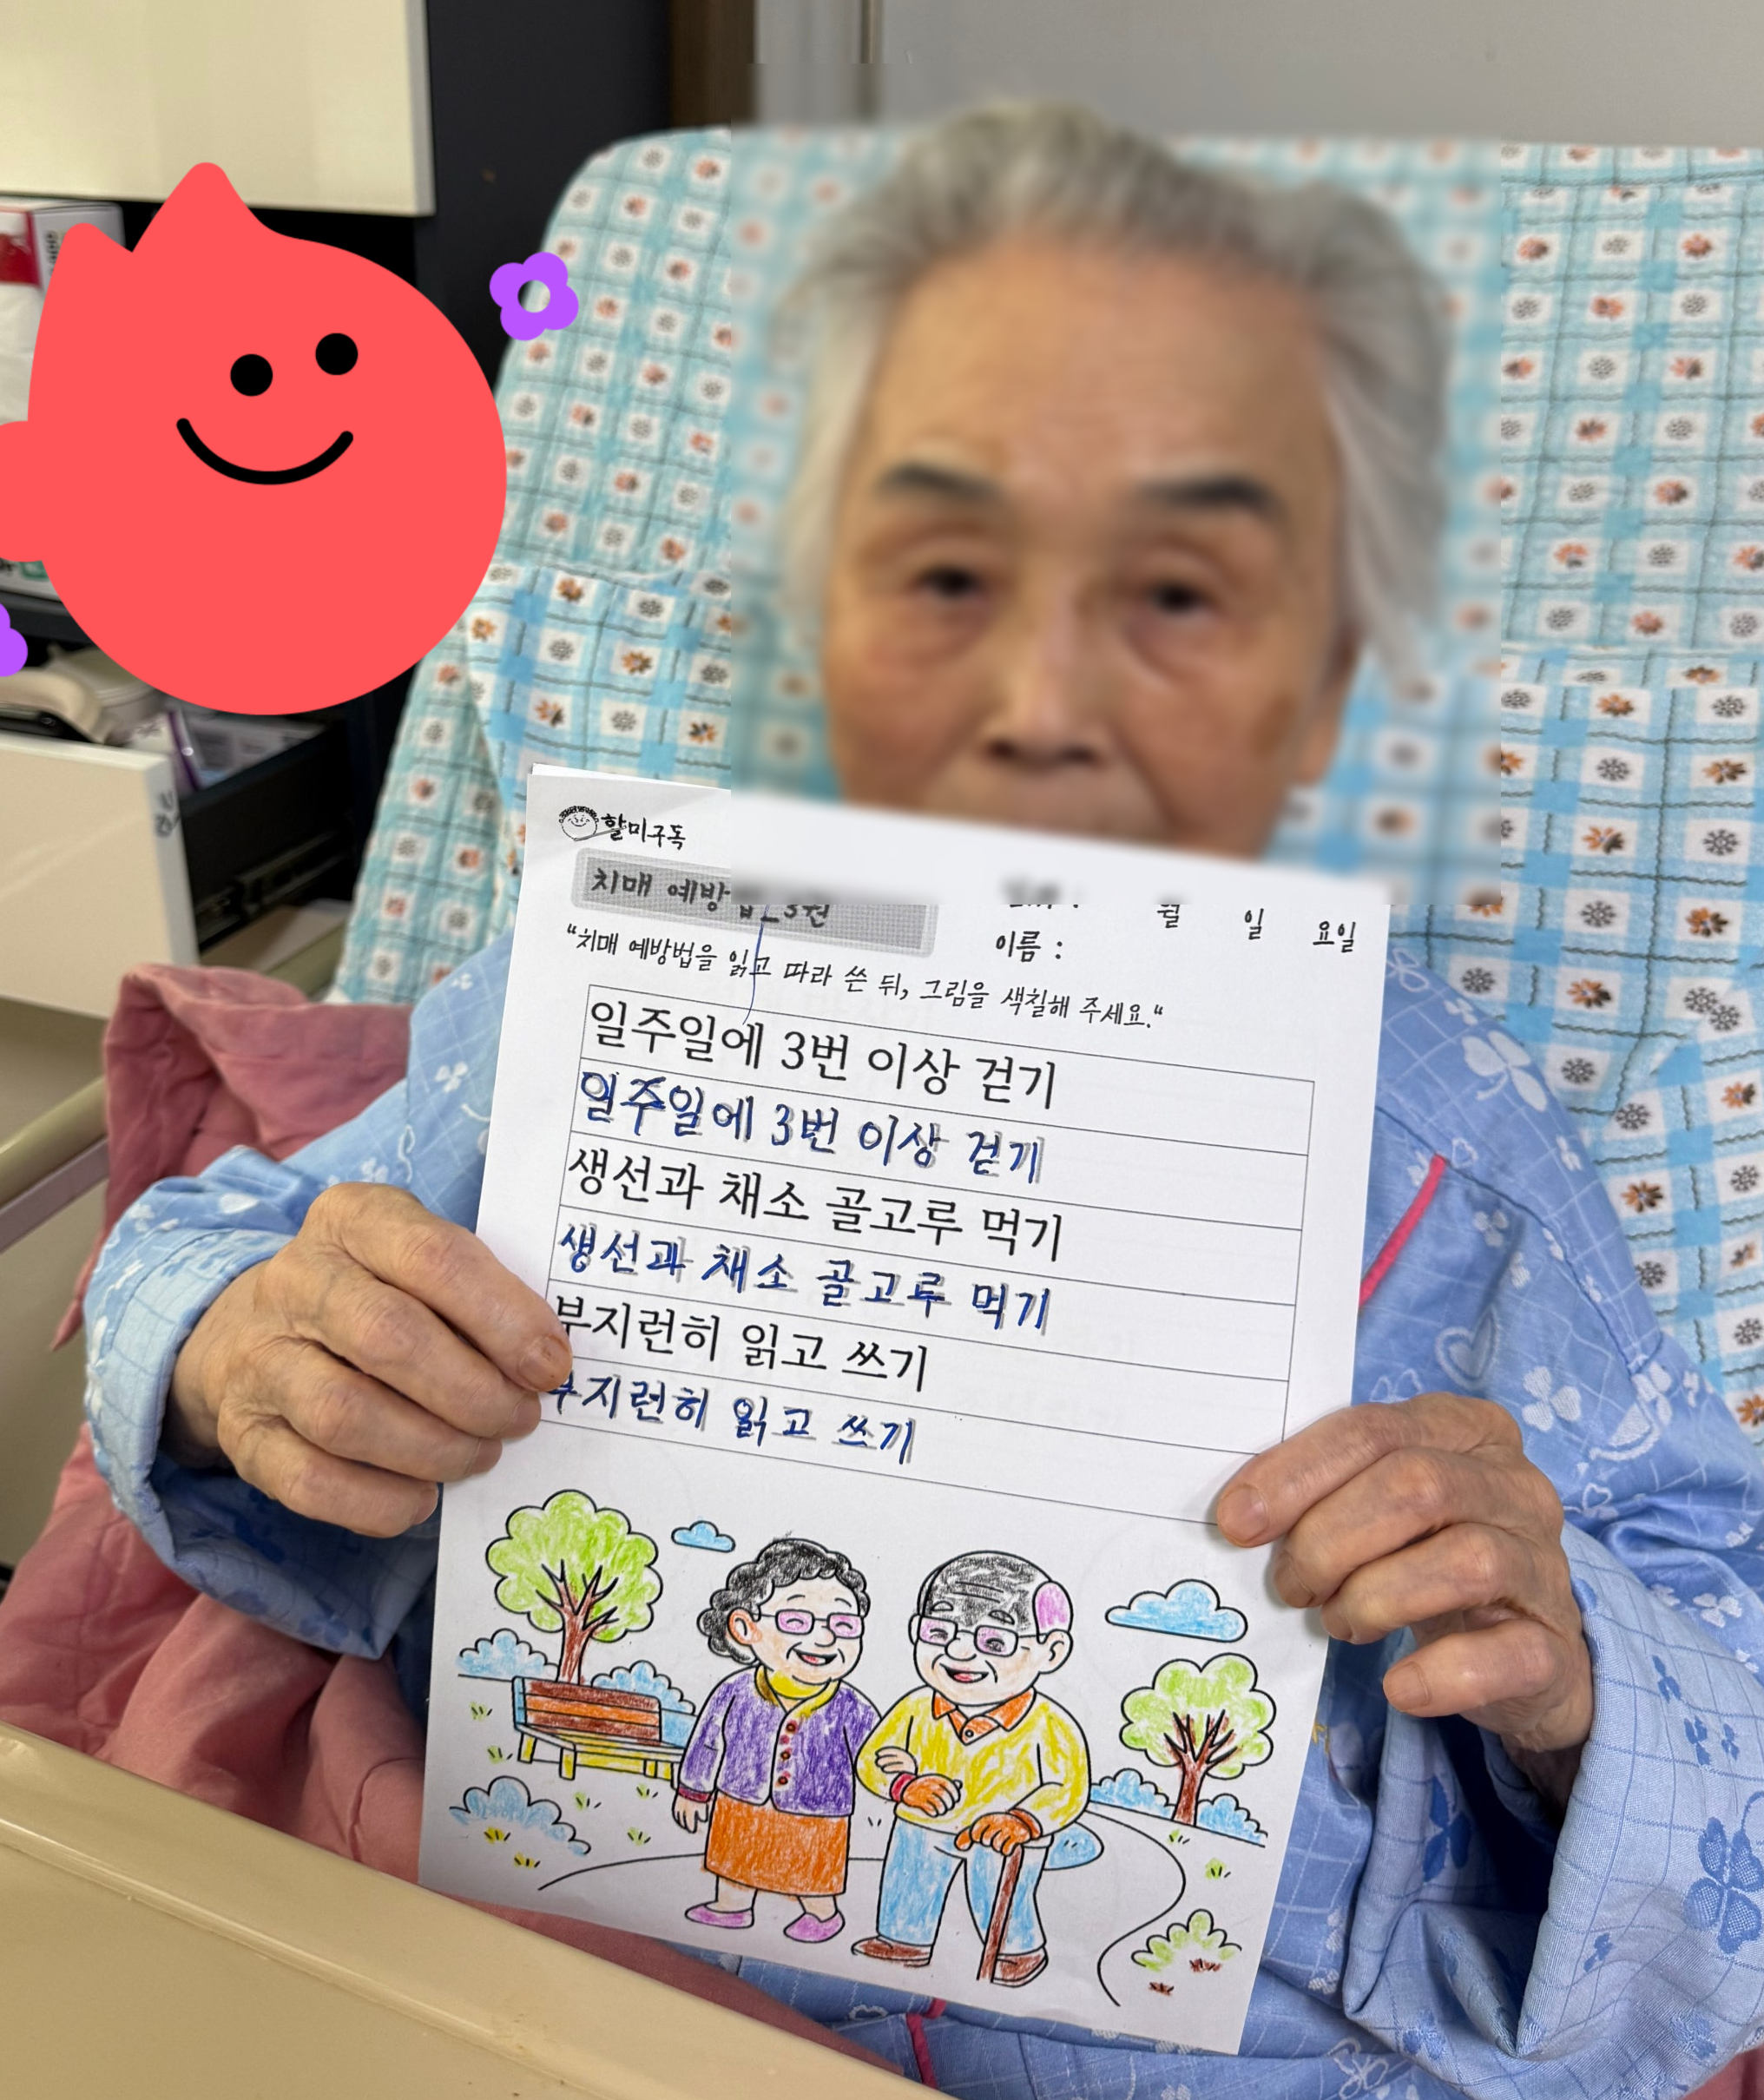 할미구독
치매 예방법_3권
월 일 요일
이름 :
"치매 예방법을 읽고 따라 쓴 뒤, 그림을 색칠해 주세요."
일주일에 3번 이상 걷기
일주일에 3번 이상 걷기
생선과 채소 골고루 먹기
생선과 채소 골고루 먹기
부지런히 읽고 쓰기
부지런히 읽고 쓰기